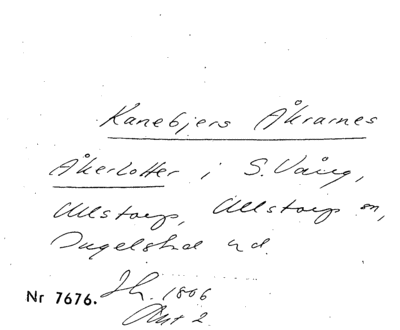 Kanebjers Åkrarnes
Åkerlotter i S. Vång,
Ullstorp, Ullstorp sn,
Ingelstad hd.
Jh. 1806
Akt 2
Nr 7676.